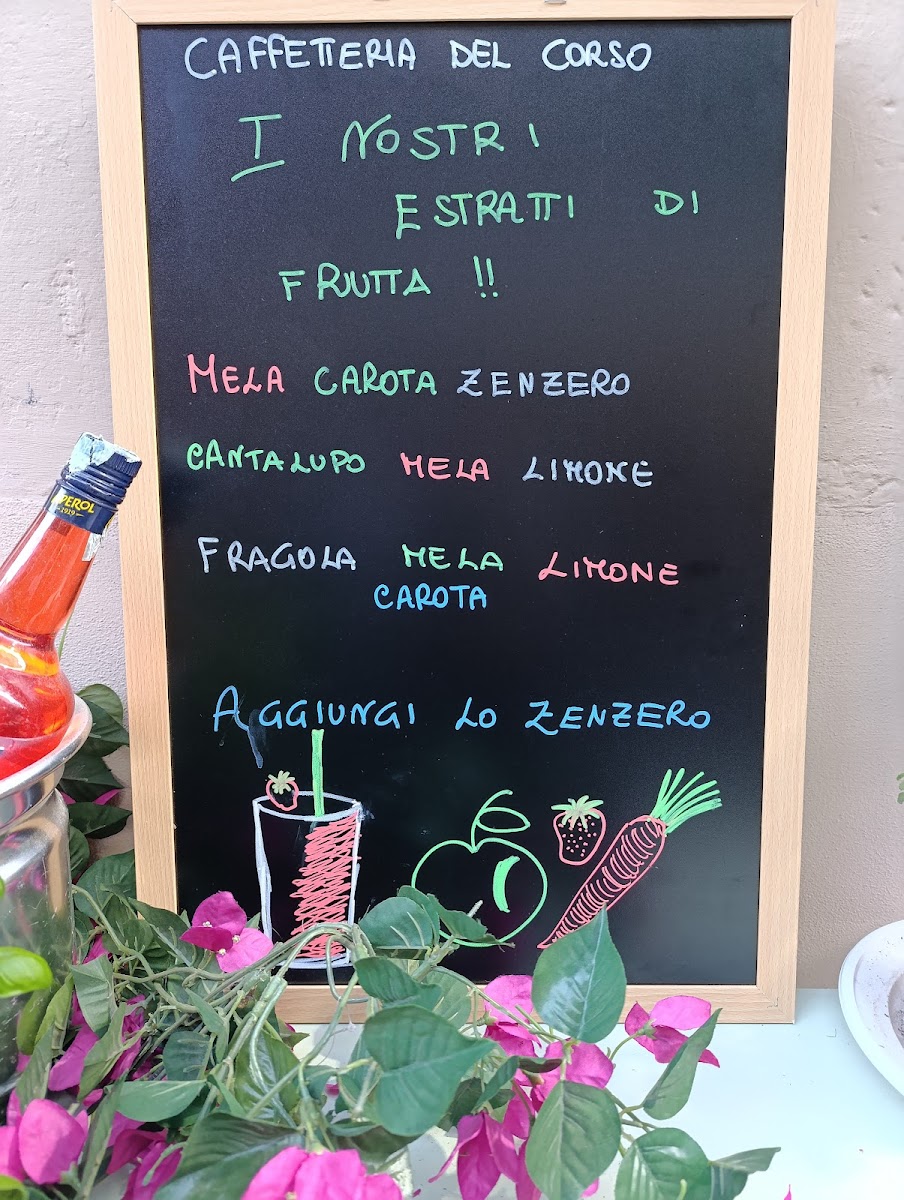 CAFFETTERIA DEL CORSO
I NOSTRI
ESTRATTI DI
FRUTTA !!
MELA CAROTA ZENZERO
CANTALUPO MELA LIMONE
FRAGOLA MELA LIMONE
CAROTA
AGGIUNGI LO ZENZERO
PEROL
1919